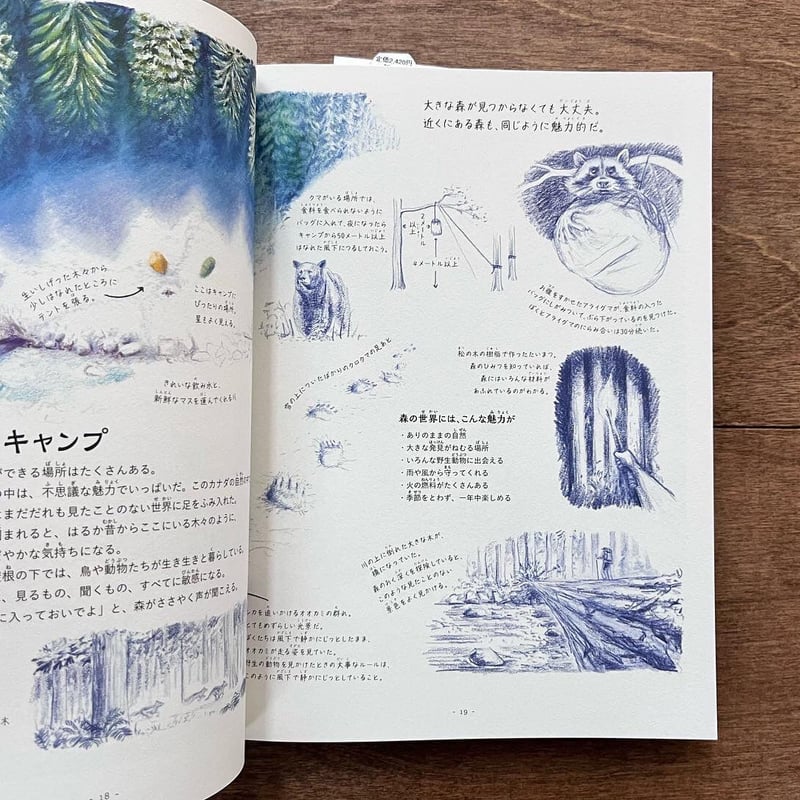 定価2,420円
生いしげった木々から
少しはなれたところに
テントを張る。
ここはキャンプに
ぴったりの場所。
星もよく見える。
きれいな飲み水と、
新鮮なマスを運んでくれる川
キャンプ
ができる場所はたくさんある。
の中は、不思議な魅力でいっぱいだ。このカナダの自然
まだだれも見たことのない世界に足をふみ入れた。
まれると、はるか昔からここにいる木々のように、
やかな気持ちになる。
根の下では、鳥や動物たちが生き生きと暮らしている。
、見るもの、聞くもの、すべてに敏感になる。
に入っておいでよ」と、森がささやく声が聞こえる。
木
- 18 -
大きな森が見つからなくても大丈夫。
近くにある森も、同じように魅力的だ。
クマがいる場所では、
食料を食べられないように
バッグに入れて、夜になったら
キャンプから50メートル以上
はなれた風下につるしておこう。
2メートル以上
4メートル以上
お腹をすかせたアライグマが、食料の入った
バッグにしがみついて、ぶら下がっているのを見つけた。
ぼくとアライグマのにらみ合いは30分続いた。
雪の上についたばかりのクロクマの足あと
松の木の樹脂で作ったたいまつ。
森のひみつを知っていれば、
森にはいろんな材料が
あふれているのがわかる。
森の世界には、こんな魅力が
・ありのままの自然
・大きな発見がねむる場所
・いろんな野生動物に出会える
・雨や風から守ってくれる
・火の燃料がたくさんある
・季節をとわず、一年中楽しめる
川の上に倒れた大きな木が、
橋になっていた。
森のおく深くを探検していると、
このような見たことのない
景色をよく見かける。
シカを追いかけるオオカミの群れ。
とてもめずらしい光景だ。
ぼくたちは風下で静かにじっとしたまま、
オオカミが走る姿を見ていた。
野生の動物を見かけたときの大事なルールは、
このように風下で静かにじっとしていること。
- 19 -